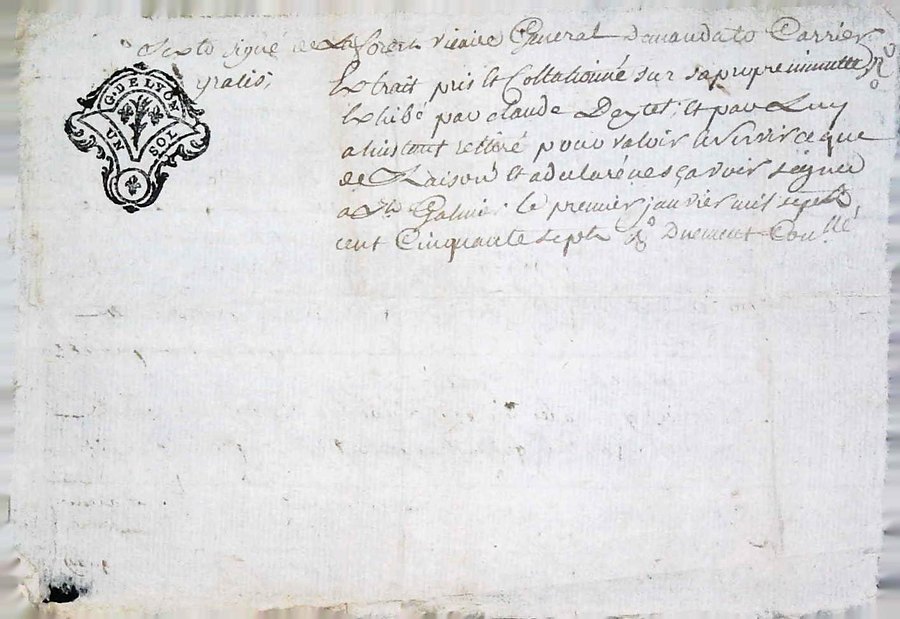 Sexto signé de La forest vicaire General Demandato Carrier
gratis;
G. DE LYON
UN SOL
Extrait pris et Collationné sur sa propre minutte
Exhibé par claude et par Luy
a linstant retiré pour valoir et servir ce que
de Raison et a declaré ne sçavoir signer
a St Galmier le premier janvier mil sept
cent Cinquante sept